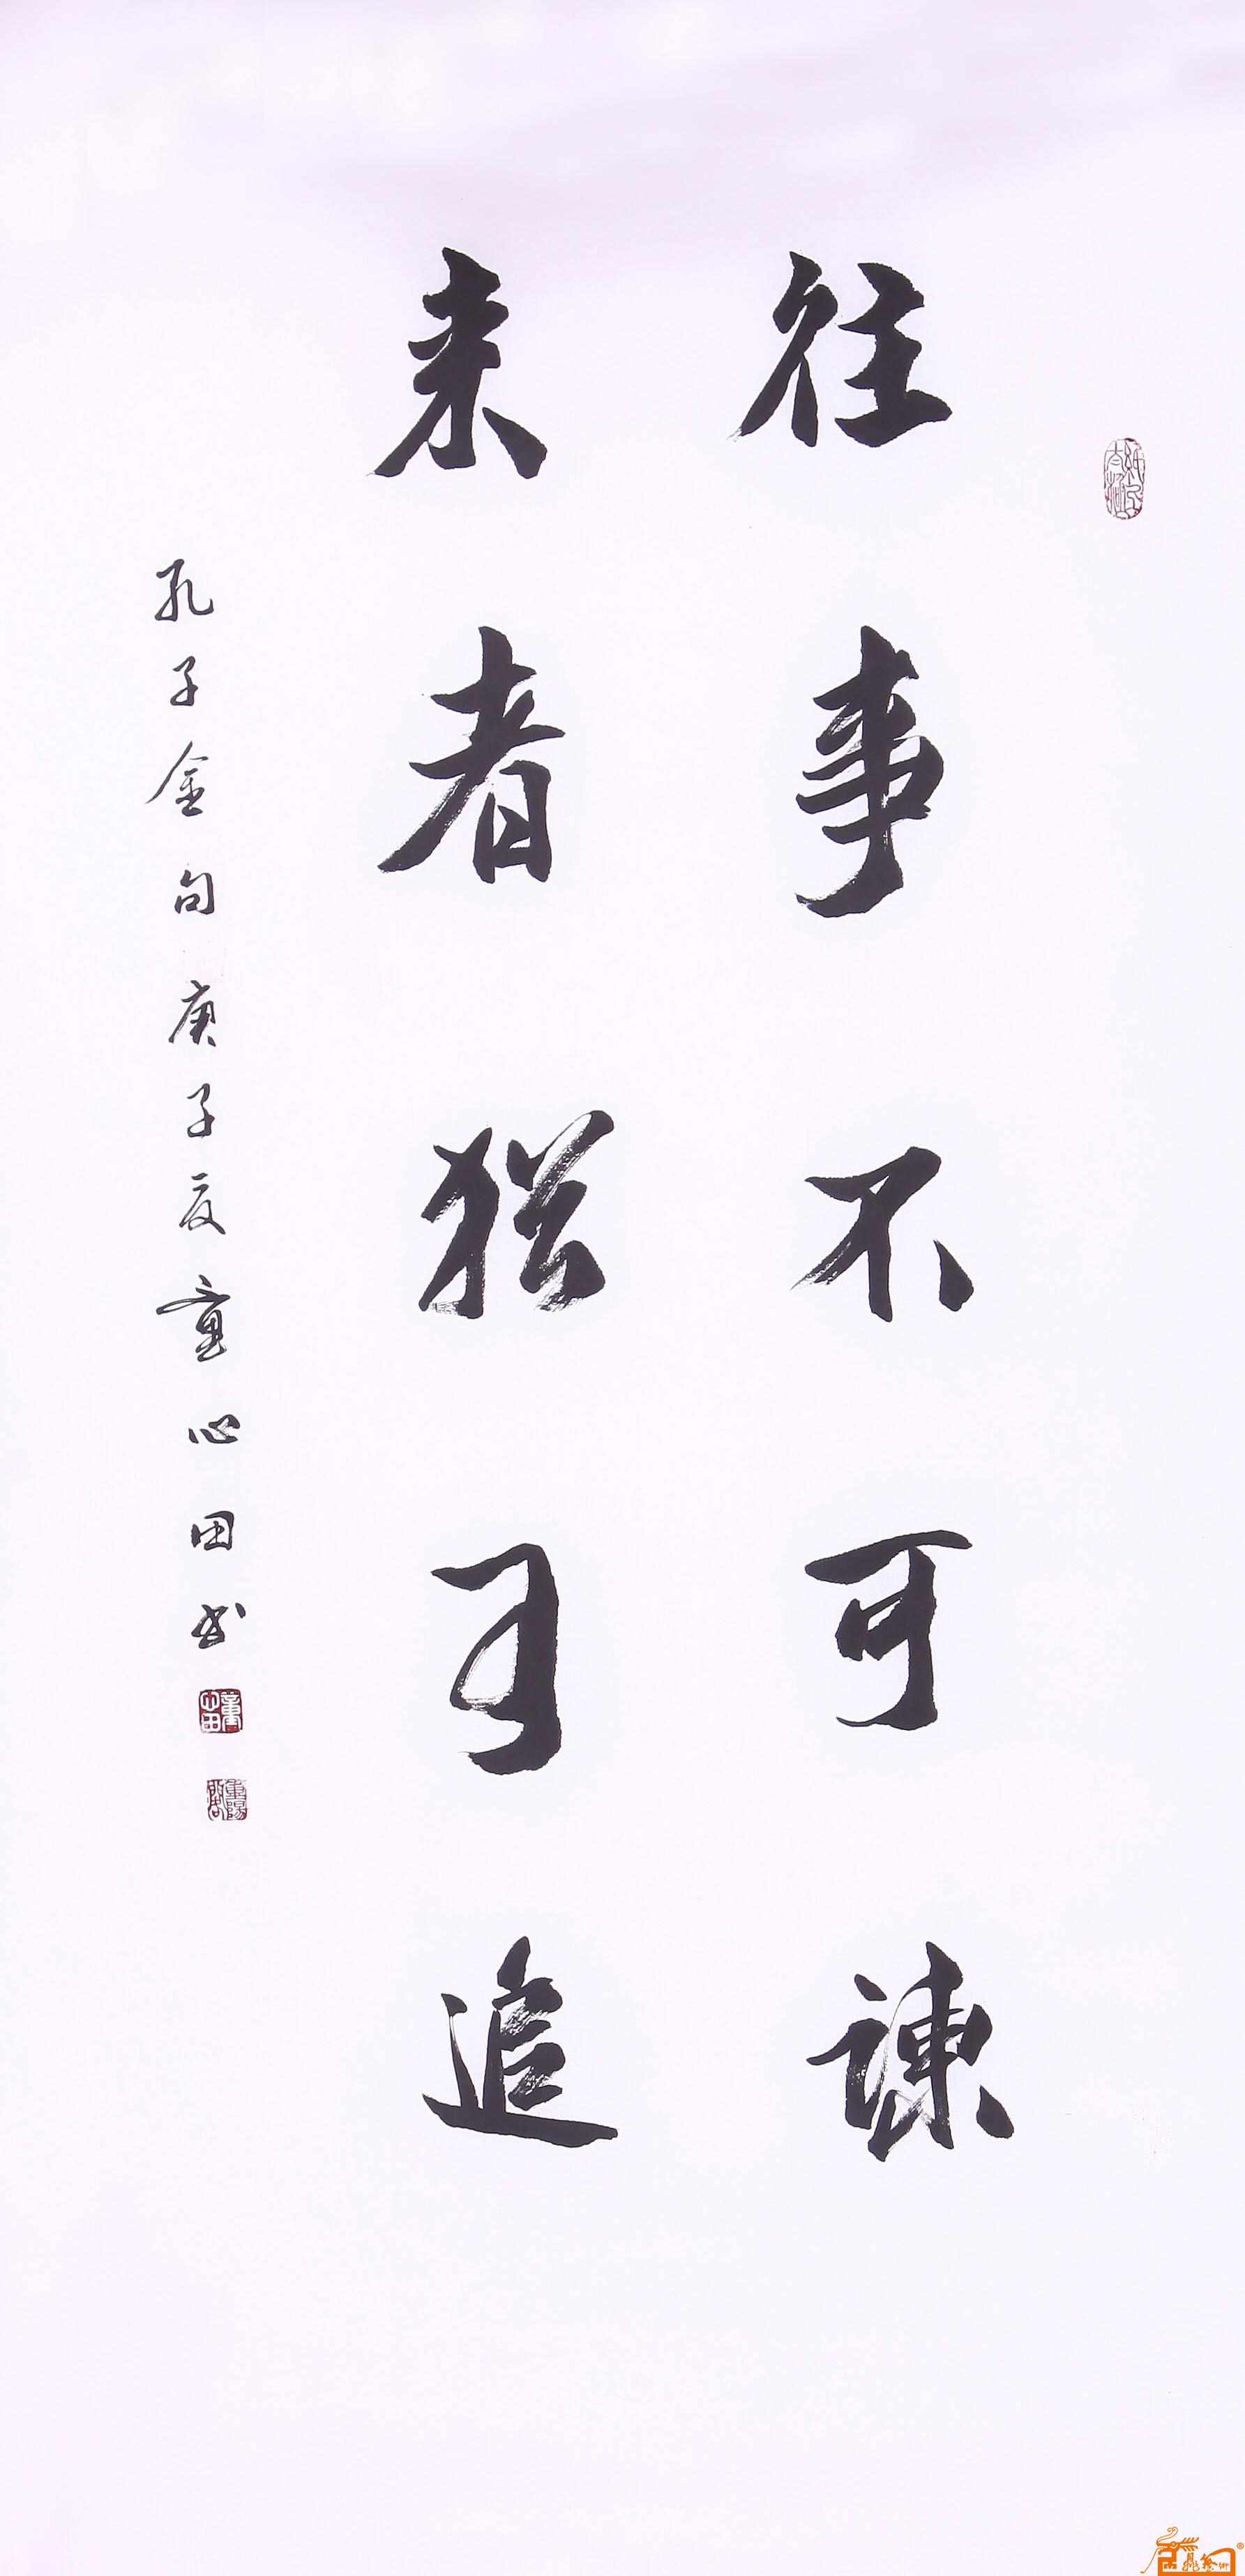 往事不可谏
来者犹可追
孔子金句庚子夏童心田书